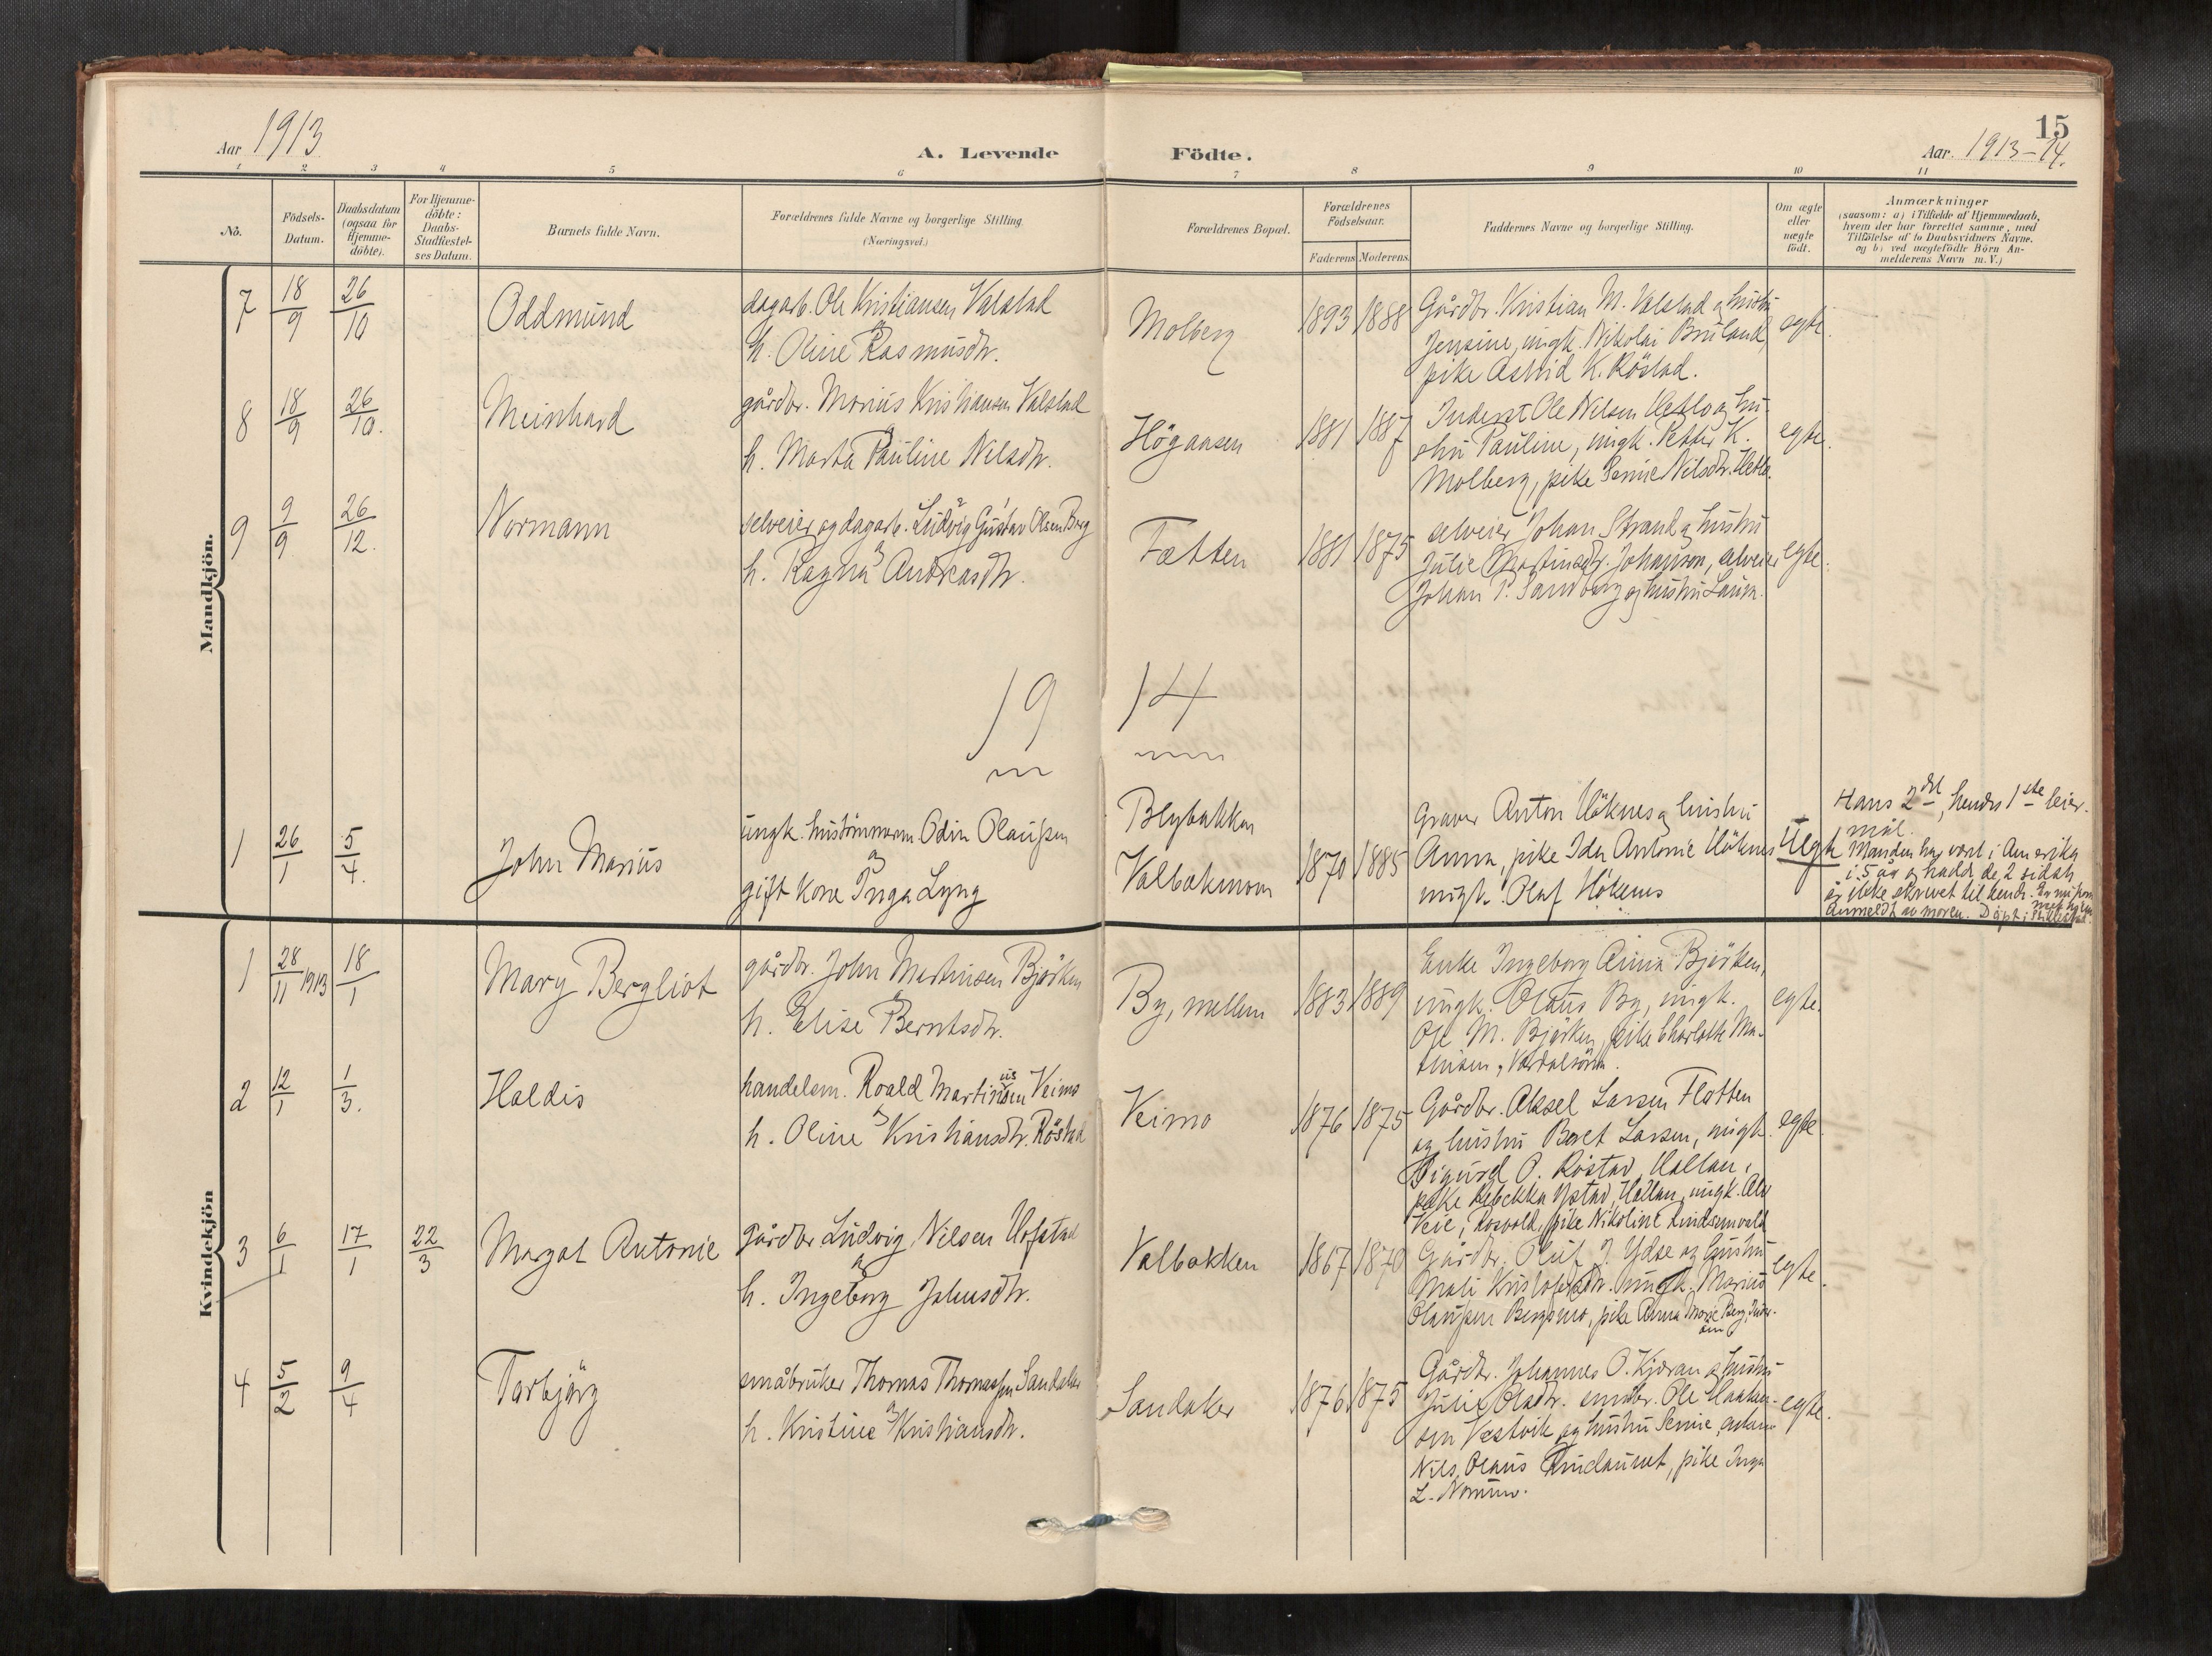 15
Aar 1913
A. Levende Födte.
Aar. 1913-14.
1 2 3 4 5 6 7 8 9 10 11
No.
Födsels-
Datum.
Daabsdatum
(ogsaa for
Hjemme-
döbte).
For Hjemme-
döbte:
Daabs-
Stadfæstel-
ses Datum.
Barnets fulde Navn.
Forældrenes fulde Navne og borgerlige Stilling.
(Næringsvei.)
Forældrenes Bopæl.
Forældrenes
Födselsaar.
Faderens Moderens.
Faddernes Navne og borgerlige Stilling.
Om ægte
eller
uægte
födt.
Anmærkninger
(saasom: a) i Tilfælde af Hjemmedaab,
hvem der har forrettet samme, med
Tilföielse af to Daabsvidners Navne,
og b) ved uægtefödte Börn An-
melderens Navn m. V.)
Mandkjön.
7 18/9 26/10 Oddmund
dagarb. Ole Kristiansen Valstad
og
h. Oline Rasmusdtr.
Molberg 1893 1888
Gårdbr. Kristian M. Valstad og hustru
Jensine, ungk. Nikolai Bruland,
pike Astrid K. Röstad.
egte.
8 18/9 26/10. Meinhard
gårdbr. Marius Kristiansen Valstad
og
h. Marta Pauline Nilsdtr.
Högaasen 1881 1887
Inderst Ole Nilsen Hetlo og hu-
stru Pauline, ungk. Petter K.
Molberg, pike Nilsdtr. Hetlo.
egte.
9 9/9 26/12. Normann
selveier og dagarb. Ludvig Gustav Olsen Berg
og
h. Ragna Andreasdtr.
Tætten 1881 1875
selveier Johan Strand og hustru
Julie Martinsdtr. Johanson, selveier
Johan P. Sandberg og hustru Laura.
egte.
19 14
1 26/1 5/4. John Marius
ungk. hustömmerm. Odin Olausen
og
gift kone Inga Lyng
Blybakken
Valbakmoen 1870 1885
Graver Anton Höknes og hustru
Anna, pike Ida Antonie Höknes
ungk. Olaf Höknes
Uegte
Hans 2det, hendes 1ste leier-
mål.
Manden har vært i Amerika
i 5 år og hadde de 2 sidste
år ikke skrevet til hende.
Anmeldt av moren. Döpt i
Kvindekjön
1 28/11 1913 18/1 Mary Bergliot
gårdbr. John Martinsen Björken
og
h. Elise Berntsdtr.
By, mellem 1883 1889
Enke Ingeborg Anna Björken,
ungk. Olaus By, ungk.
Ole M. Björken, pike Charlotte Ma-
tinsen, Værdalsören.
egte.
2 12/1 1/3. Haldis
handelsm. Roald Martinius Veimo
og
h. Oline Kristiansdtr. Röstad
Veimo 1876 1875
Gårdbr. Aksel Larsen Flotten
og hustru Beret Larsen, ungk.
Sigurd O. Röstad, Hallan,
pike Rebekka Ystad, Hallan, ungk.
Veie, Rosvold, pike Nikoline Lindsetmvald
egte.
3 6/1 17/1 22/3 Margot Antonie
Gårdbr. Ludvig Nilsen Hofstad
og
h. Ingeborg Johnsdtr.
Valbakken 1867 1870
Gårdbr. Oluf J. Ydse og hustru
Mali Kristofersdtr. ungk. Marius
Olausen Bergsmo, pike Anna Marie Berg, Inder-
öen
egte.
4 5/2 9/4 Torbjörg
småbruker Thomas Thomassen Sandaker
og
h. Kristine Kristiansdtr.
Sandaker 1876 1875
Gårdbr. Johannes O. Kjæran og hustru
Julie Olsdtr. småbr. Ole Haakan-
sen Vestvik og hustru
Nils Olaus pike Inga
L.
egte.